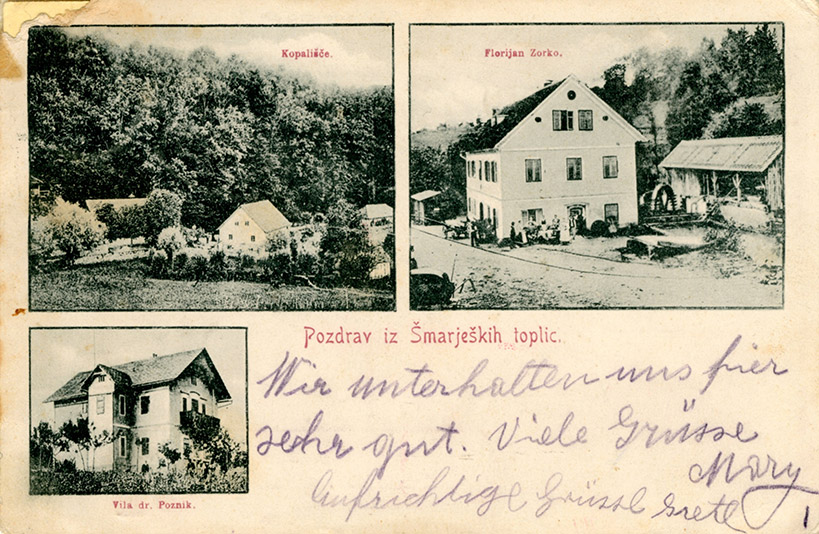 Kopališče.
Florijan Zorko.
Pozdrav iz Šmarjeških toplic.
Wir unterhalten uns hier
sehr gut. Viele Grüsse
Mary
Aufrichtige Grüsse Grete
Vila dr. Poznik.
1